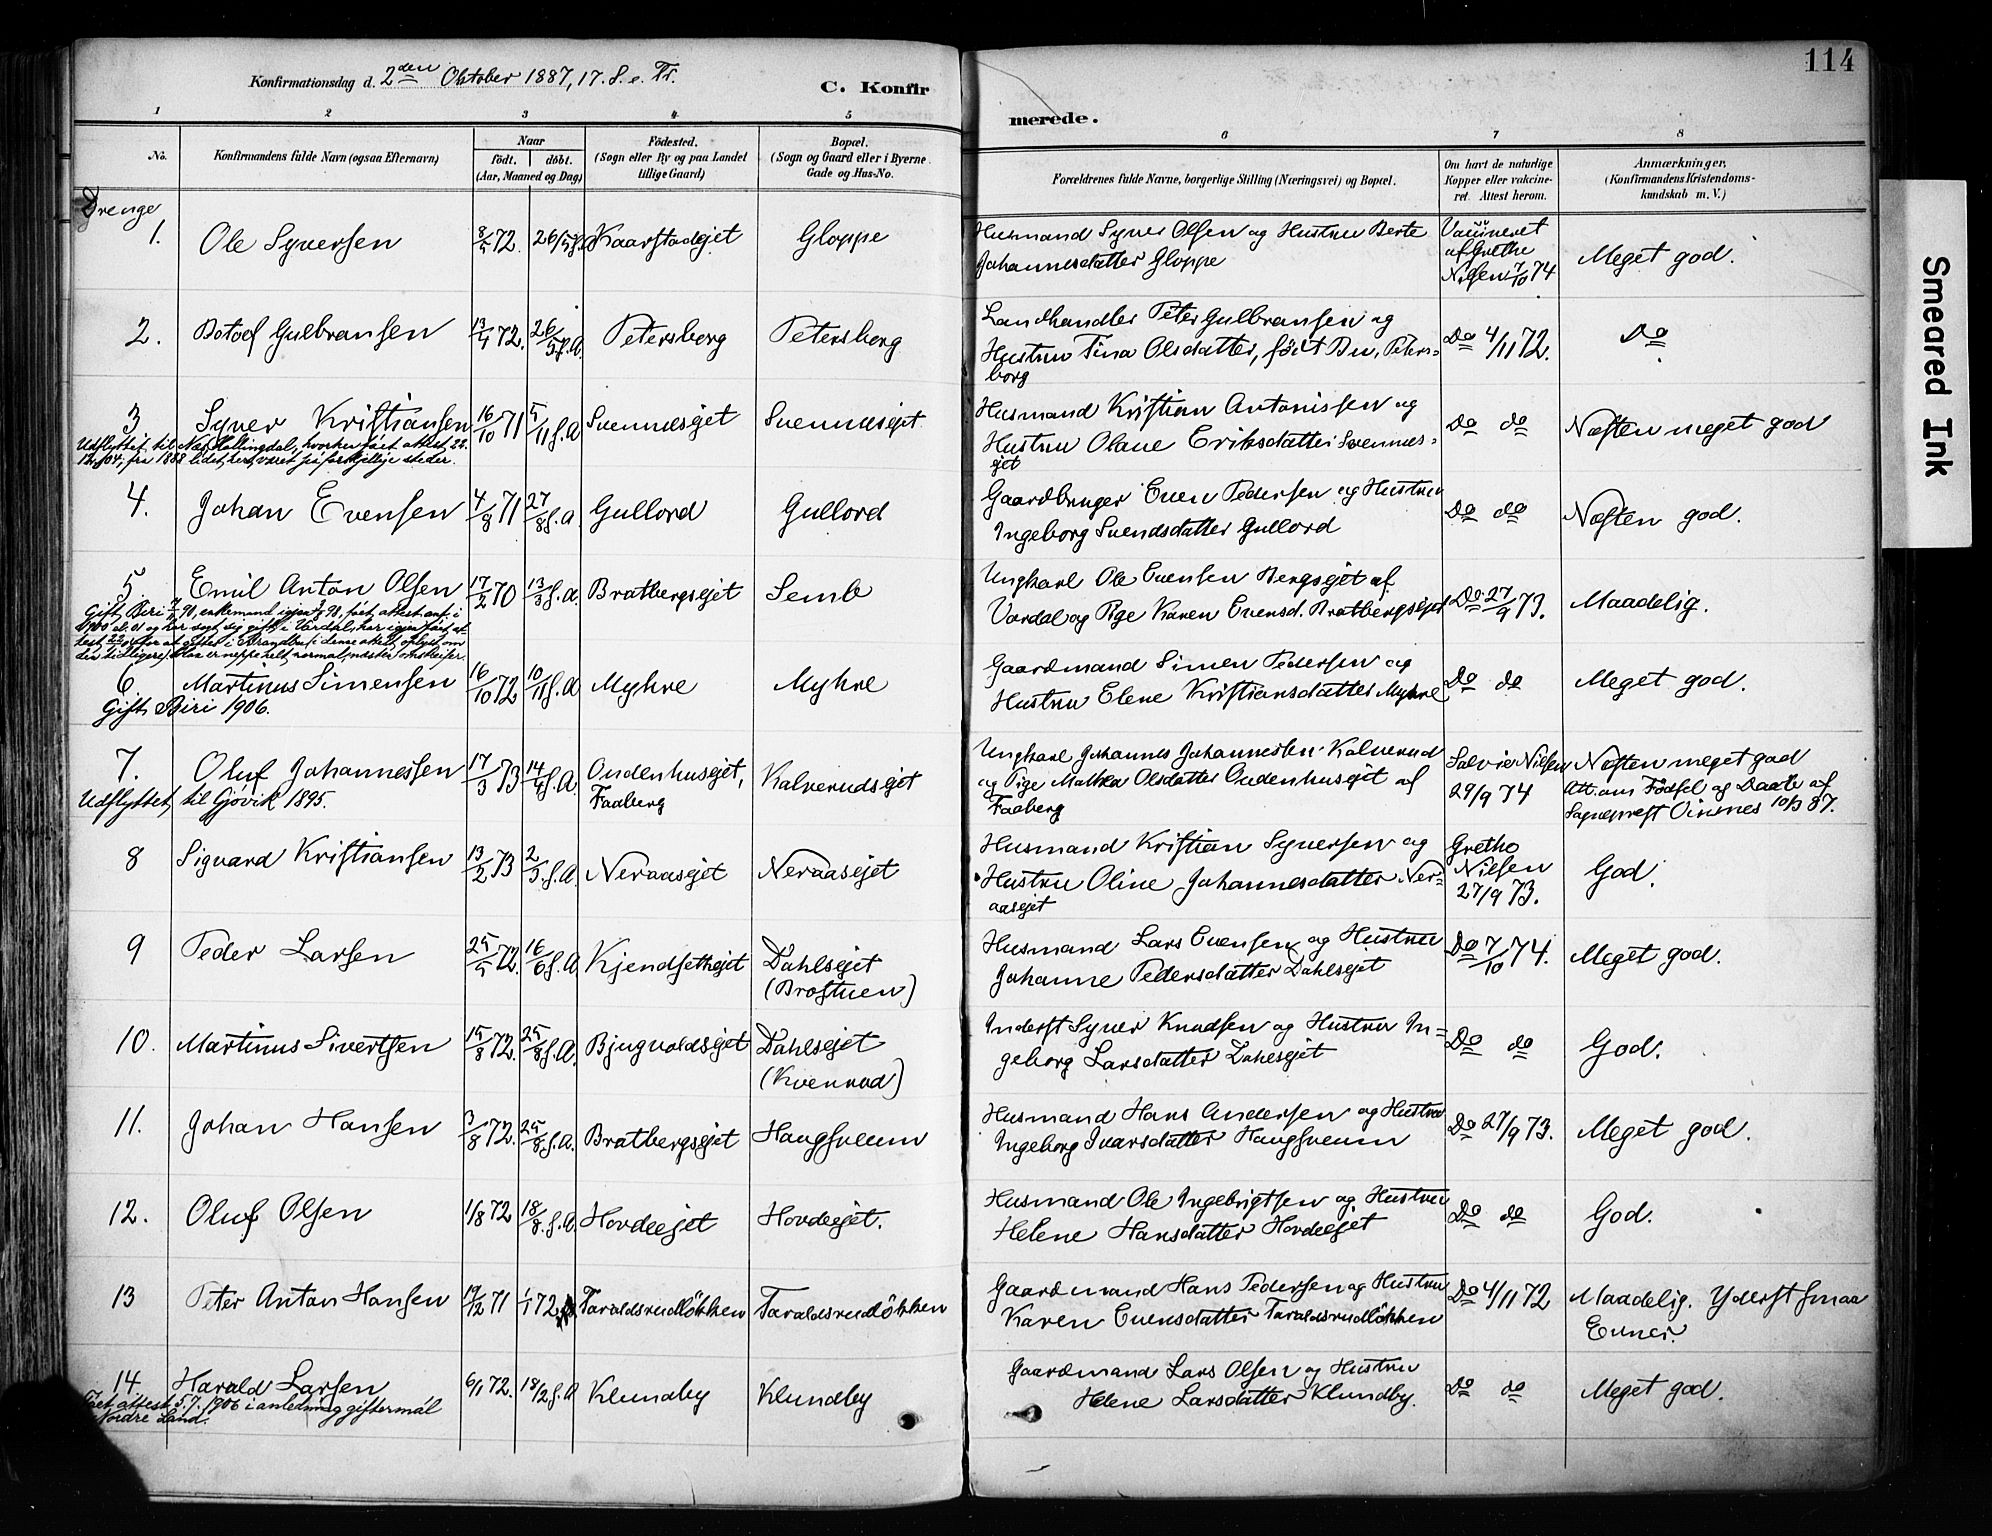 114
Konfirmationsdag d. 2den Oktober 1887, 17. S. e. Tr.
C. Konfirmerede.
1 2 3 4 5 6 7 8
No.
Konfirmandens fulde Navn (ogsaa Efternavn)
Naar
født. døbt.
(Aar, Maaned og Dag)
Fødested.
(Sogn eller By og paa Landet
tillige Gaard)
Bopæl.
(Sogn og Gaard eller i Byerne
Gade og Hus-No.
Forældrenes fulde Navne, borgerlige Stilling (Næringsvei) og Bopæl.
Om havt de naturlige
Kopper eller vakcine-
ret. Attest herom.
Anmærkninger,
(Konfirmandens Kristendoms-
kundskab m. V.)
Drenge
1. Ole Syversen 8/5 72. 26/5 Kaarstadejet Gloppe
Husmand Syver Olsen og Hustru Berte
Johannesdatter Gloppe
Vaccineret
af Grethe
Nilsen 7/10 74
Meget god.
2. Botolf Gulbransen 13/4 72. 26/5 f.A. Petersborg Petersborg
Landhandler Peter Gulbransen og
Hustru Tina Olsdatter, født Bu, Peters-
borg
Do 4/11 72.
Do
3 Syver Kristiansen 16/10 71 5/11 f.A Svennesejet Svennesejet
Udflyttet til Næs, Hallingdal, hvorhen faaet attest 22.
12. 04; fra 1888 lidet her, været på forskjellige steder.
Husmand Kristian Antonissen og
Hustru Olane Eriksdatter Svennes-
ejet
Do do
Næsten meget god
4. Johan Evensen 4/8 71 27/8 f.a. Gullord Gullord
Gaardbruger Even Pedersen og Hustru
Ingeborg Svendsdatter Gullord
Do do
Næsten god.
5. Emil Anton Olsen 17/2 70 13/3 f.a. Bratbergsejet Semb
Gift, Biri 90, enkemand igjen 98, faaet attest
Ungkarl Ole Evensen Bergsejet af
Vardal og Pige Karen Evensd. Bratbergsejet
Do 27/9 73.
Maadelig.
6 Martinus Simensen 16/10 72 10/11 f.A Myhre Myhre
Gift, Biri 1906.
Gaardmand Simen Pedersen og
Hustru Elene Kristiansdatter Myhre
Do do
Meget god.
7. Oluf Johannessen 17/3 73 14/4 f.A. Ondenhusejet, Kalverudsejet
Faaberg
Udflyttet til Gjøvik 1895.
Ungkarl Johannes Johannessen Kalverud
og Pige Mathea Olsdatter Ondenhusejet af
Faaberg
Salvier Nilsen
29/9 74
Næsten meget god
Att. om Fødsel og Daab af
Sogneprest Vinsnes 10/3 87.
8 Sigvard Kristiansen 13/2 73 2/3 f.A. Neraasejet Neraasejet
Husmand Kristian Syversen og
Hustru Oline Johannesdatter Ner-
aasejet
Grethe
Nilsen
27/9 73.
God.
9 Peder Larsen 25/5 72. 16/6 f.A Kjendsethejet Dahlsejet
(Brostuen)
Husmand Lars Evensen og Hustru
Johanne Pedersdatter Dahlsejet
Do 7/10 74.
Meget god.
10. Martinus Sivertsen 15/8 72. 25/8 f.A. Bjugvoldsejet Dahlsejet
(Kvenrud)
Inderst Syver Knudsen og Hustru In-
geborg Larsdatter Dahlsejet
Do do
God.
11. Johan Hansen 3/8 72. 25/8 f.A. Bratbergsejet Haugsveum
Husmand Hans Andersen og Hustru
Ingeborg Ivarsdatter Haugsveum
Do 27/9 73.
Meget god.
12. Oluf Olsen 1/8 72 18/8 f.A Hovdeejet Hovdeejet.
Husmand Ole Ingebrigtsen og Hustru
Helene Hansdatter Hovdeejet
Do do
God.
13 Peter Anton Hansen 19/12 71 1/1 72 Taraldsrudløkken Taraldsrudløkken
Gaardmand Hans Pedersen og Hustru
Karen Evensdatter Taraldsrudløkken
Do 4/11 72
Maadelig. Yderst smaa
Evner.
14 Harald Larsen 6/1 72. 18/2 f.A Klundby Klundby
Faaet attest 5.7.1906 i anledning giftermål
Nordre Land.
Gaardmand Lars Olsen og Hustru
Helene Larsdatter Klundby.
Do do
Meget god.
Smeared Ink